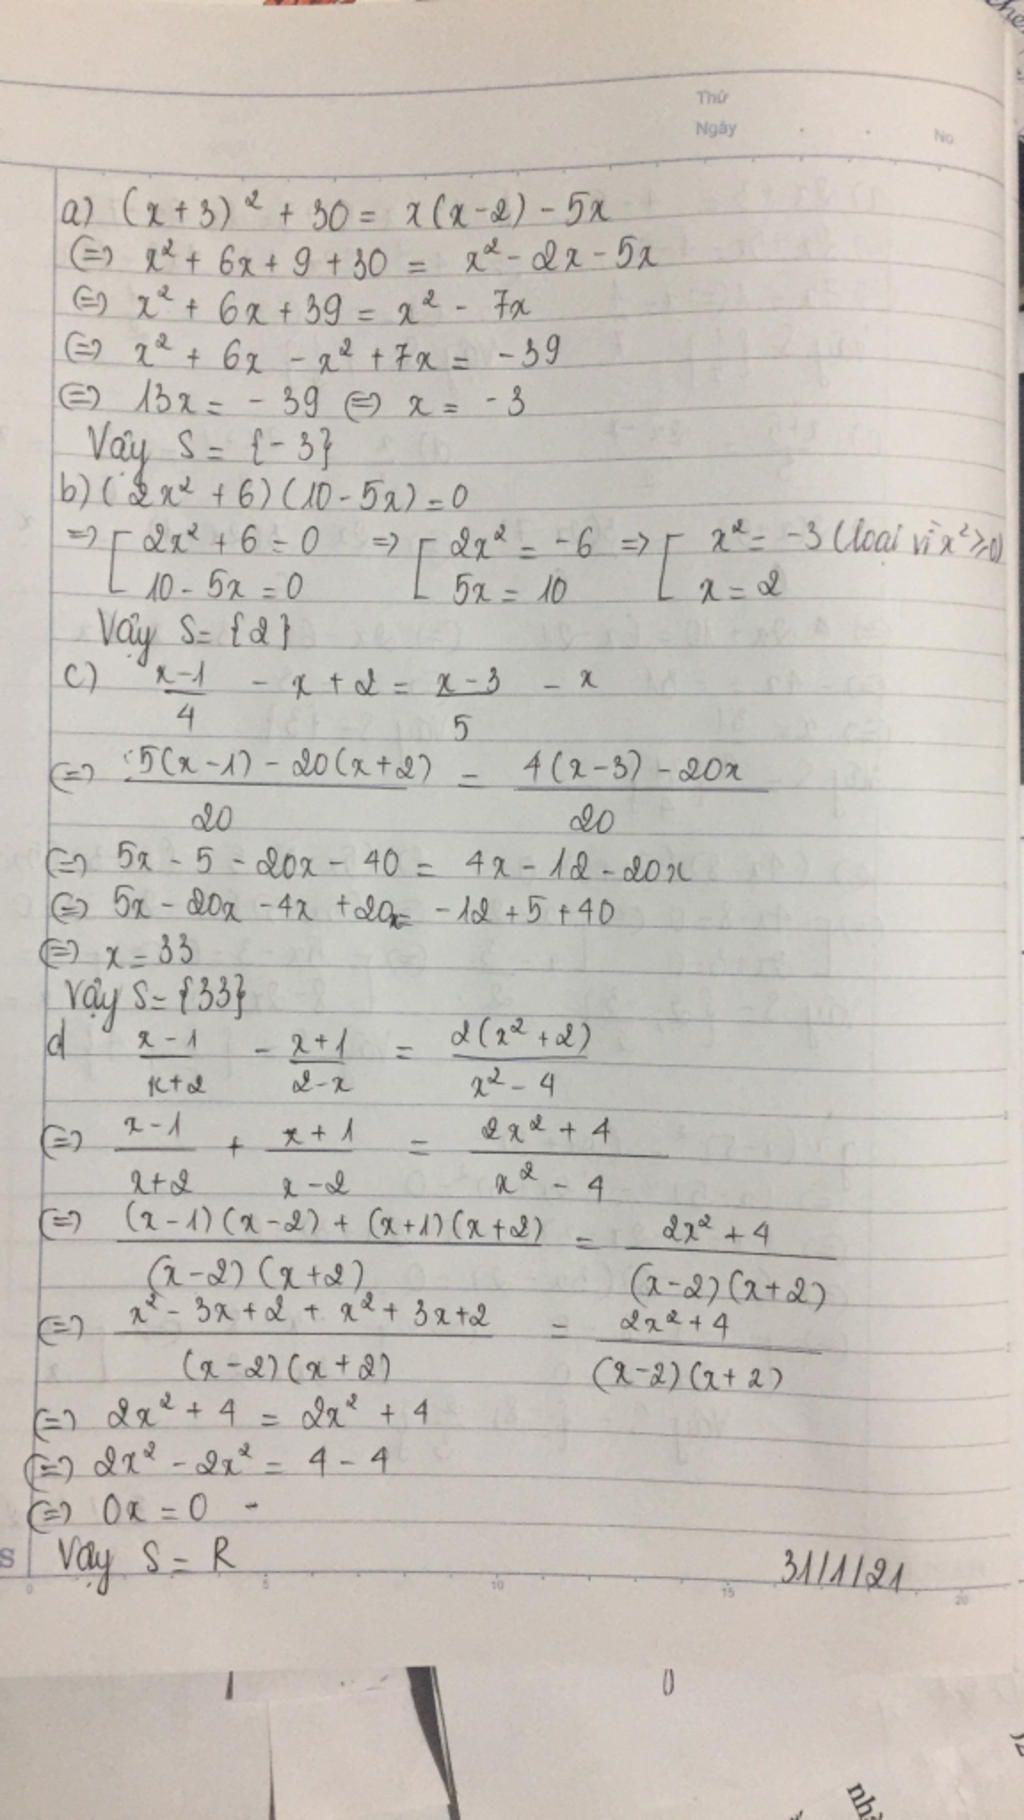 Thứ
Ngày
No
a) (x+3)² + 30 = x(x-2) - 5x
(=) x² + 6x + 9 + 30 = x² - 2x - 5x
(=) x² + 6x + 39 = x² - 7x
(=) x² + 6x - x² + 7x = -39
(=) 13x = -39 (=) x = -3
Vậy S = {-3}
b) (2x² + 6)(10 - 5x) = 0
=> [ 2x² + 6 = 0 => [ 2x² = -6 => [ x² = -3 (loại vì x² ≥ 0)
10 - 5x = 0 5x = 10 x = 2
Vậy S = {2}
c) x-1/4 - x + 2 = x-3/5 - x
(=) 5(x-1) - 20(x+2)/20 = 4(x-3) - 20x/20
(=) 5x - 5 - 20x - 40 = 4x - 12 - 20x
(=) 5x - 20x - 4x + 20x = -12 + 5 + 40
(=) x = 33
Vậy S = {33}
d x-1/x+2 - x+1/2-x = 2(x²+2)/x²-4
(=) x-1/x+2 + x+1/x-2 = 2x²+4/x²-4
(=) (x-1)(x-2) + (x+1)(x+2)/(x-2)(x+2) = 2x²+4/(x-2)(x+2)
(=) x² - 3x + 2 + x² + 3x + 2/(x-2)(x+2) = 2x²+4/(x-2)(x+2)
(=) 2x² + 4 = 2x² + 4
(=) 2x² - 2x² = 4 - 4
(=) 0x = 0
Vậy S = R
31/1/21
S
0 5 10 15 20